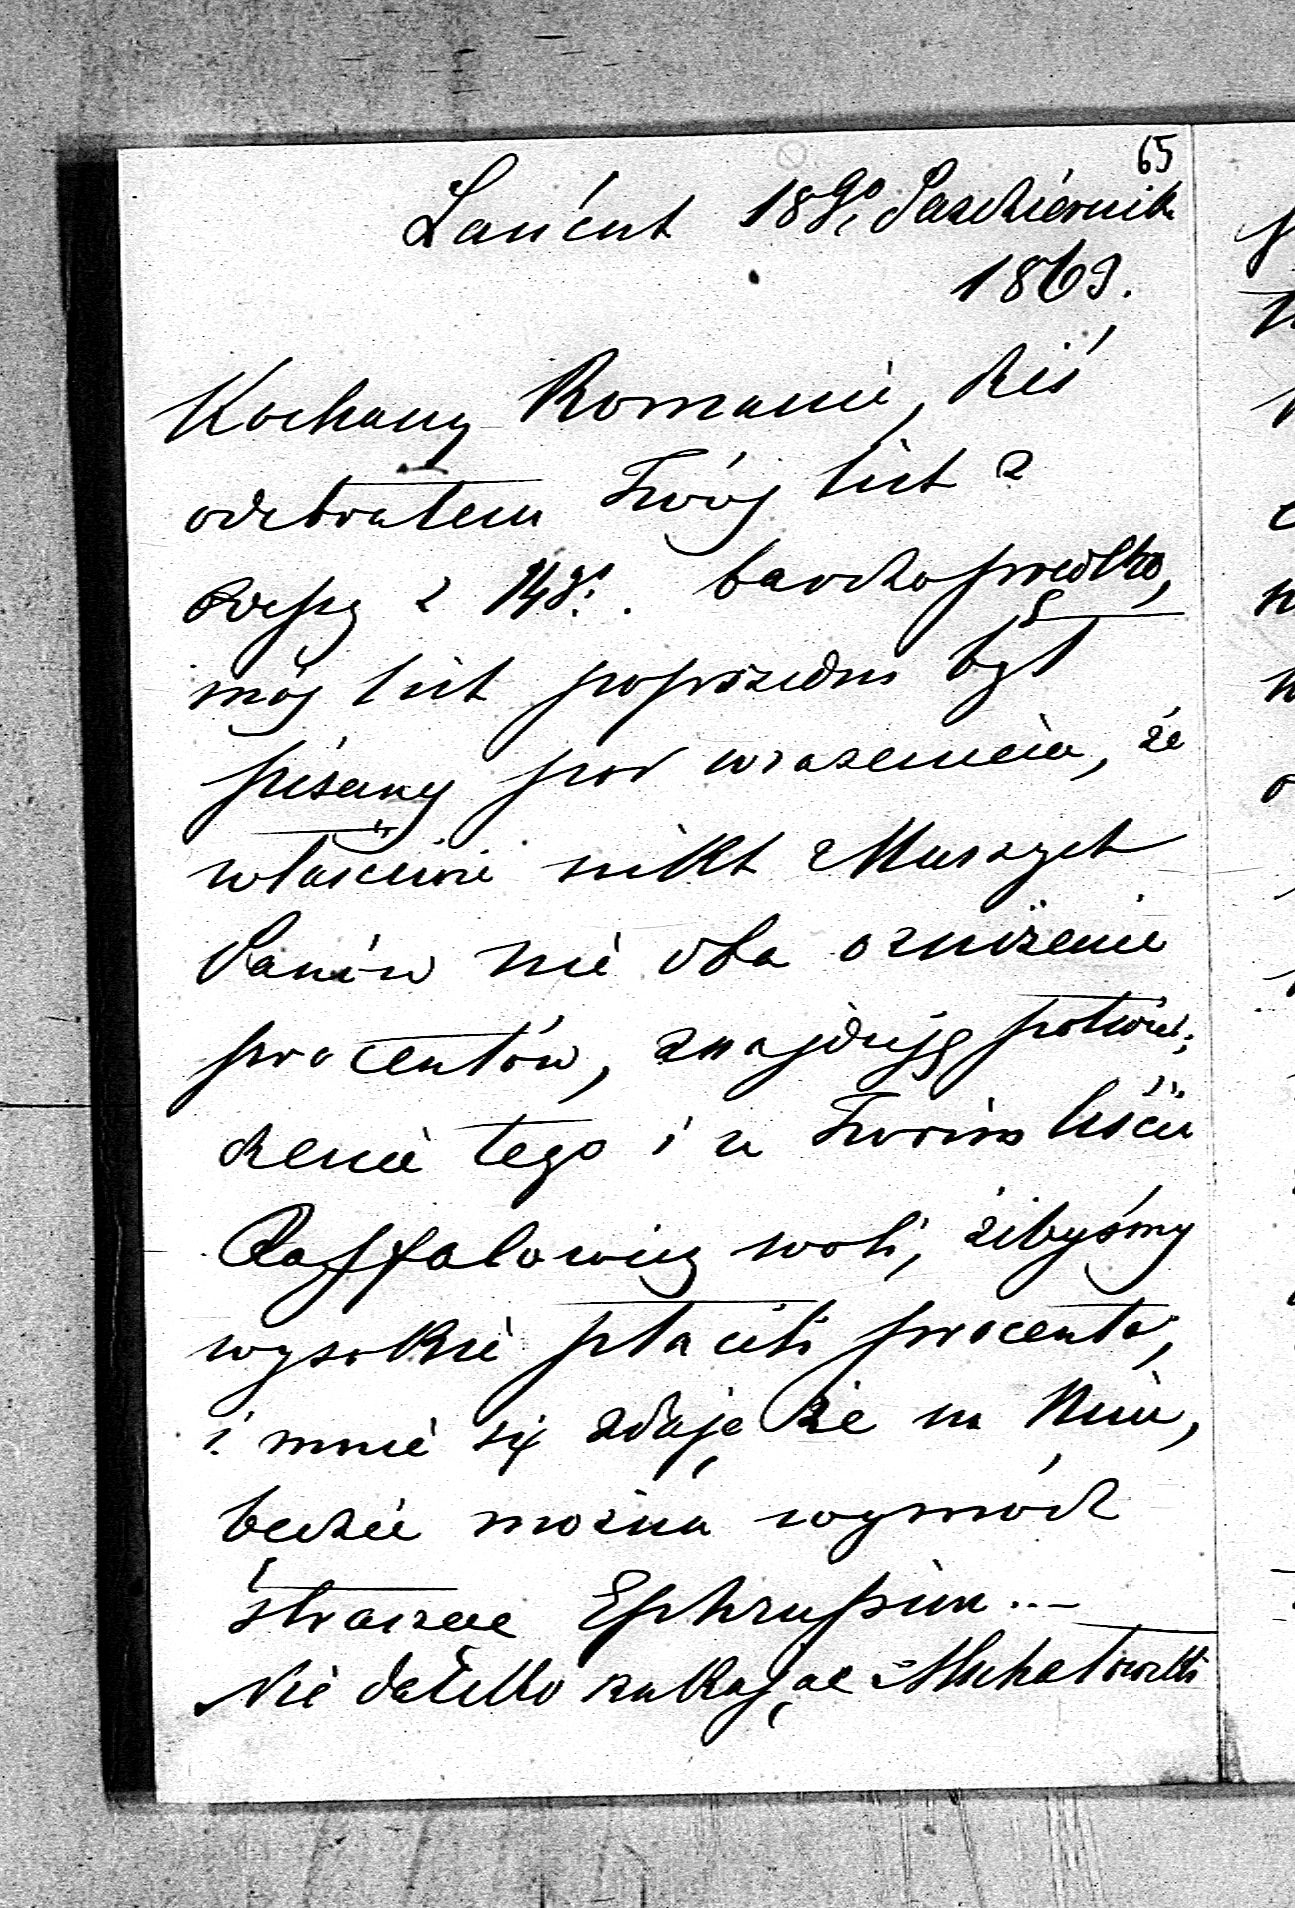 65
Łańcut 18go Październik
1869.
Kochany Romanie, dziś
odebrałem Twój list z
Odessy z 14go. bardzo prędko,
mój list poprzedni był
pisany pod wrażeniem, że
właściwie nikt z Naszych
Panów nie dba o zniżenie
procentów, znajduję potwier-
dzenie tego i w Twoim liście
Raffalowicz woli, żebyśmy
wysokie płacili procenta,
i mnie się zdaje że na Nim,
będzie można wymódz
strasząc Ephrussim...
Nie daleko szukając Michałowski